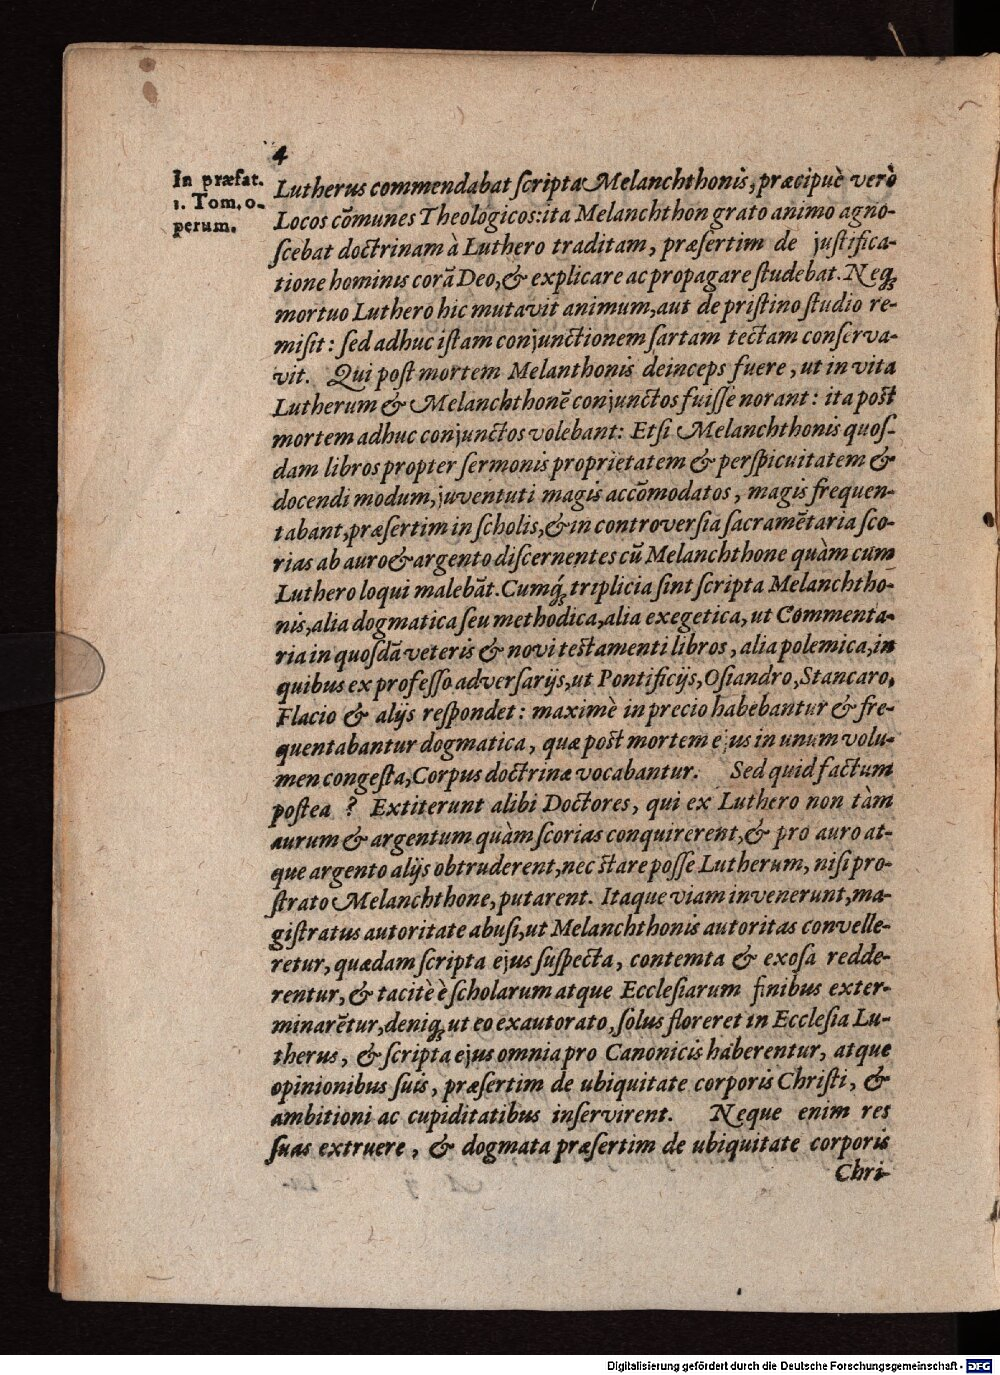 4
In præfat.
1. Tom. o-
perum.
Lutherus commendabat ſcripta Melanchthonis, præcipuè verò
Locos cõmunes Theologicos: ita Melanchthon grato animo agno-
ſcebat doctrinam à Luthero traditam, præſertim de juſtifica-
tione hominis corã Deo, & explicare ac propagare ſtudebat. Neq́;
mortuo Luthero hic mutavit animum, aut de priſtino ſtudio re-
miſit: ſed adhuc iſtam conjunctionem ſartam tectam conſerva-
vit. Qui poſt mortem Melanthonis deinceps fuere, ut in vita
Lutherum & Melanchthonẽ conjunctos fuiſſe norant: ita poſt
mortem adhuc conjunctos volebant: Etſi Melanchthonis quoſ-
dam libros propter ſermonis proprietatem & perſpicuitatem &
docendi modum, juventuti magis accõmodatos, magis frequen-
tabant, præſertim in ſcholis, & in controverſia ſacramẽtaria ſco-
rias ab auro & argento diſcernentes cũ Melanchthone quàm cum
Luthero loqui malebãt. Cumq́; triplicia ſint ſcripta Melanchtho-
nis, alia dogmatica ſeu methodica, alia exegetica, ut Commenta-
ria in quoſdã veteris & novi teſtamenti libros, alia polemica, in
quibus ex profeſſo adverſarijs, ut Pontificijs, Oſiandro, Stancaro,
Flacio & alijs reſpondet: maximè in precio habebantur & fre-
quentabantur dogmatica, quæ poſt mortem ejus in unum volu-
men congeſta, Corpus doctrinæ vocabantur. Sed quid factum
poſtea ? Extiterunt alibi Doctores, qui ex Luthero non tàm
aurum & argentum quàm ſcorias conquirerent, & pro auro at-
que argento alijs obtruderent, nec ſtare poſſe Lutherum, niſi pro-
ſtrato Melanchthone, putarent. Itaque viam invenerunt, ma-
giſtratus autoritate abuſi, ut Melanchthonis autoritas convelle-
retur, quædam ſcripta ejus ſuſpecta, contemta & exoſa redde-
rentur, & tacitè è ſcholarum atque Eccleſiarum finibus exter-
minarẽtur, deniq́; ut eo exautorato, ſolus floreret in Eccleſia Lu-
therus, & ſcripta ejus omnia pro Canonicis haberentur, atque
opinionibus ſuis, præſertim de ubiquitate corporis Chriſti, &
ambitioni ac cupiditatibus inſervirent. Neque enim res
ſuas extruere, & dogmata præſertim de ubiquitate corporis
Chri-
Digitalisierung gefördert durch die Deutsche Forschungsgemeinschaft - DFG